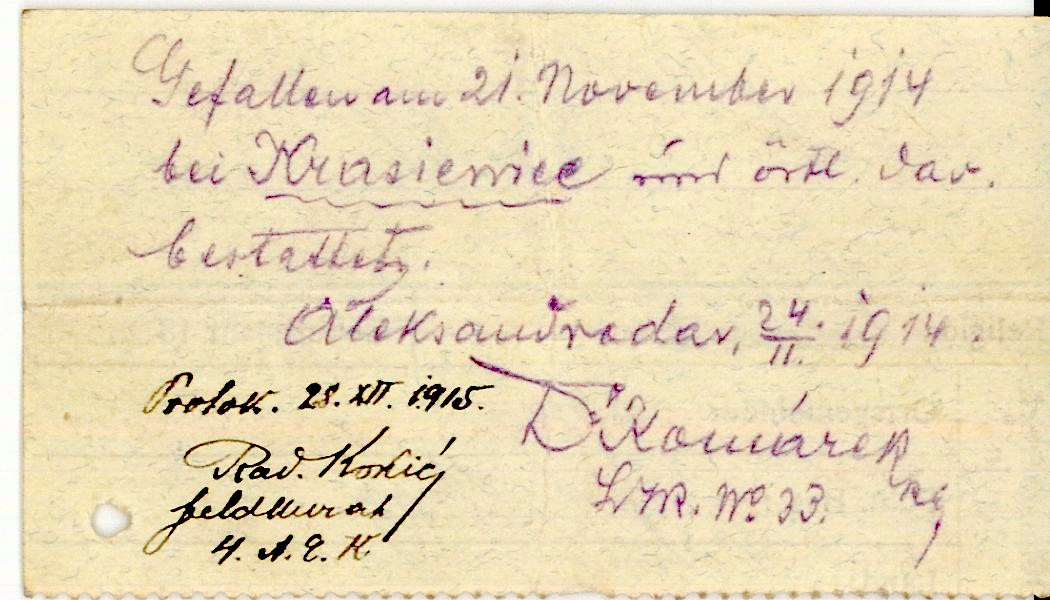 Gefallen am 21. November 1914
bei Krasiewiec und örtl. dav.
bestattet.
Aleksandrodar, 24./11. 1914.
Dr Komárek
LIR. No 33.
Protok. 28. XII. 1915.
Rad.
Feldkurat
4. A. E. K.